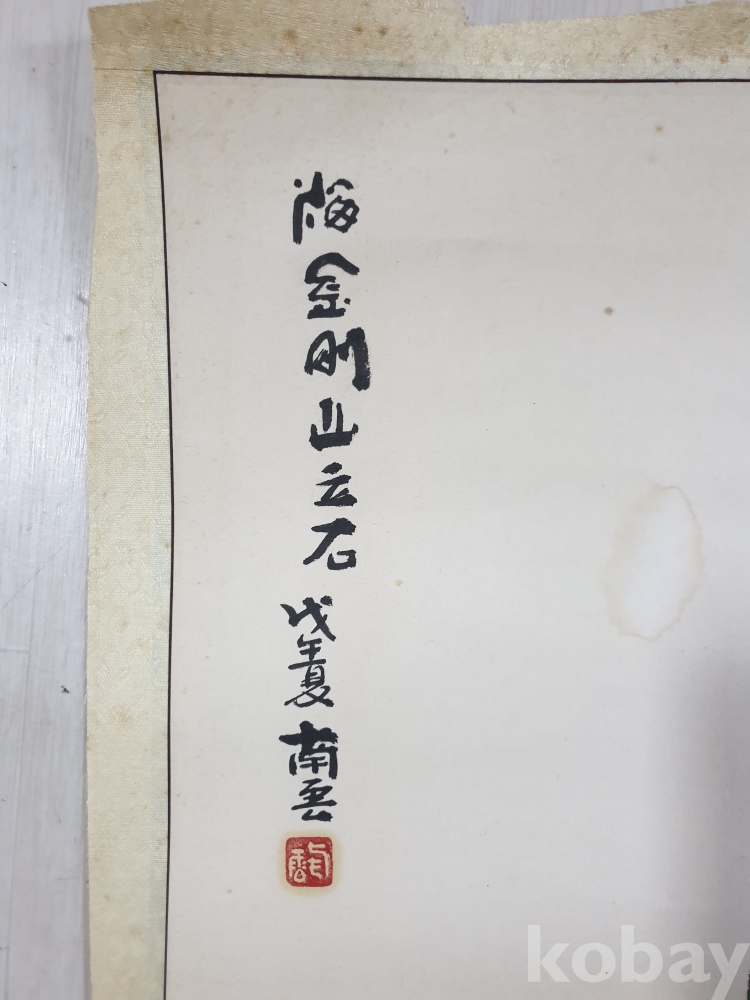 海金剛山石 戊午夏 南雲
kobay